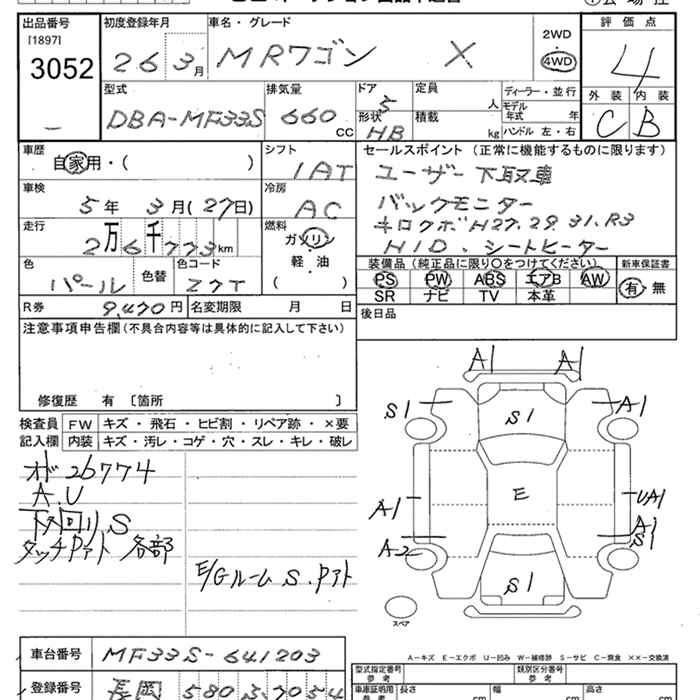 出品番号 初度登録年月 車名・グレード 評価点
[1897]
3052 26 3月 MRワゴン X 2WD 4WD 4
型式 排気量 ドア 定員 ディーラー・並行 外装 内装
DBA-MF33S 660 CC 5 人 モデル年式 年
形状 積載 C B
HB kg ハンドル 左・右
車歴 シフト セールスポイント (正常に機能するものに限ります)
自家用・( ) IAT ユーザー下取車
車検 冷房 バックモニター
5年 3月(27日) AC キロクボH27.29.31.R3
走行 燃料 HID、シートヒーター
2万6千773km ガソリン
軽・油
( )
色 色替 色コード 装備品 (純正品に限り○をつけてください) 新車保証書
パール Z7T PS PW ABS エアB AW 有・無
SR ナビ TV 本革
R券 9,470円 名変期限 月 日 後日品
注意事項申告欄 (不具合内容等は具体的に記入して下さい)
修復歴 有〔箇所 〕
検査員 FW キズ・飛石・ヒビ割・リペア跡・×要
記入欄 内装 キズ・汚レ・コゲ・穴・スレ・キレ・破レ
オド26774
A.U
下回り.S
タッチPアト 各部
E/Gルーム S.Pアト
A1 A1
S1 S1 A1
A1 E UA1
A2 A1
S1
S1
スペア
A-キズ E-エクボ U-凹み W-補修跡 S-サビ C-腐食 ××-交換済
車台番号 MF33S-641203
型式指定番号 参考 類別区分番号 参考
登録番号 長岡 580 そ7054
車庫証明用 参考 長さ cm 幅 cm 高さ cm